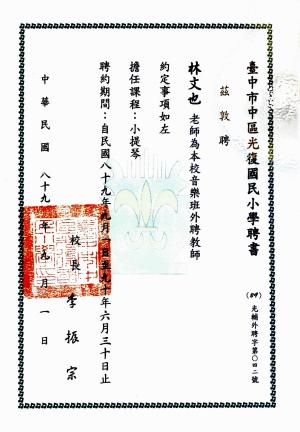 臺中市中區光復國民小學聘書
(89)光輔外聘字第○四二號
茲敦聘
林文也 老師為本校音樂班外聘教師
約定事項如左
擔任課程：小提琴
聘約期間：自民國八十九年九月一日至九十年六月三十日止
校長 李振宗
中華民國 八十九 年 九 月 一 日